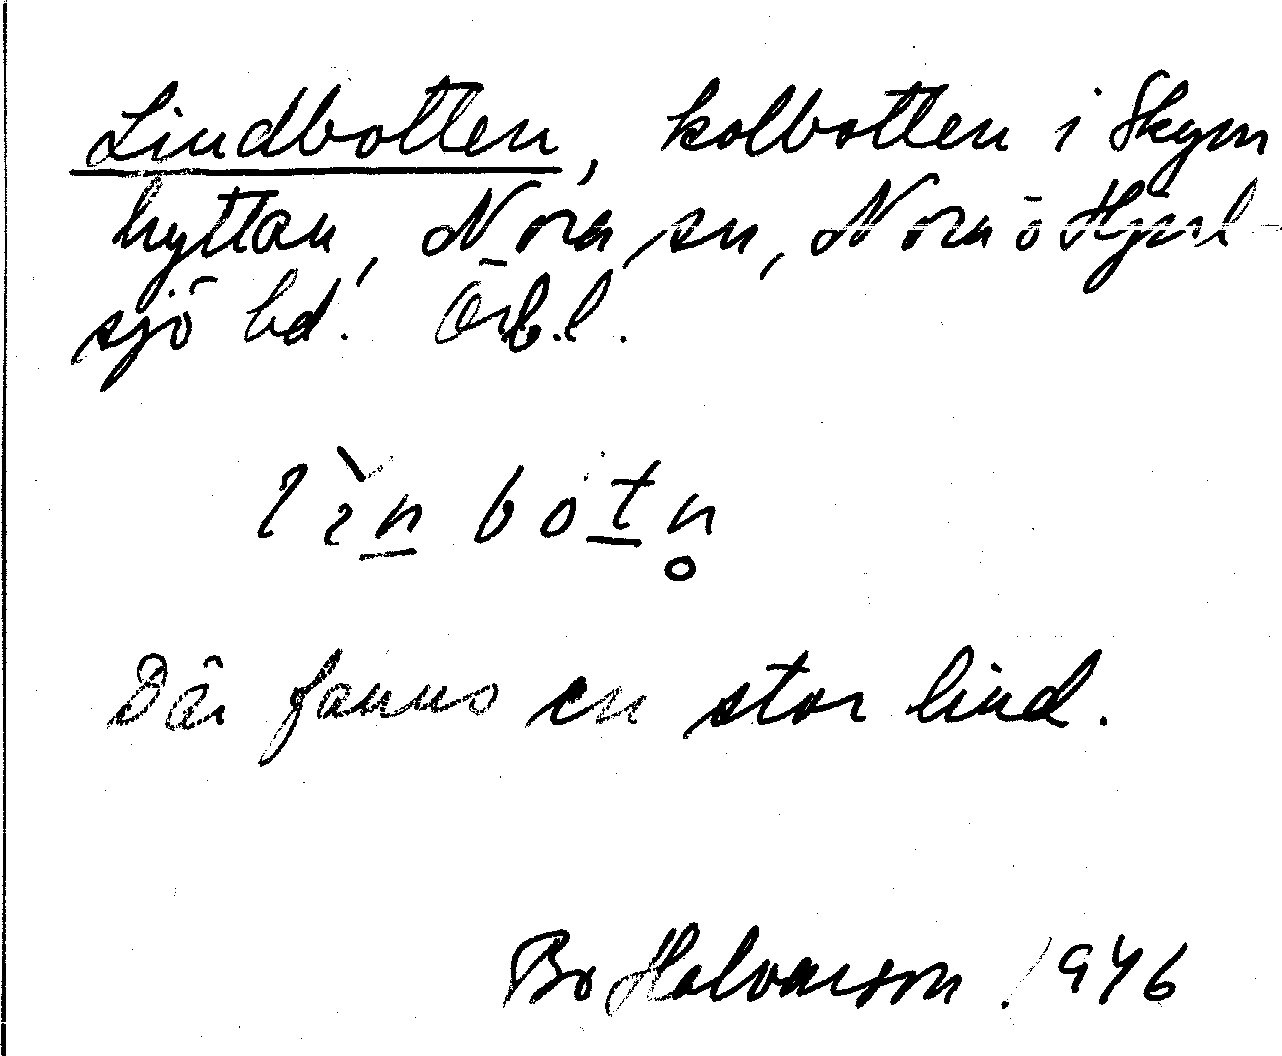 Lindbotten, kolbotten i Skym
hyttan, Nora sn, Nora ö Hjul-
sjö bd. Örb. l.
lìn botn̥
Där fanns en stor lind.
Bo Halvarson. 1946